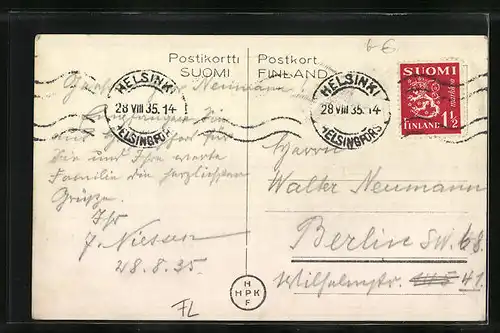 6 €
Postikortti
SUOMI
Postkort
FINLAND
HELSINKI
28 VIII 35. 14
HELSINGFORS
HELSINKI
28 VIII 35. 14
HELSINGFORS
SUOMI
markkaa
FINLAND 1 1/2
Neumann!
für
Sie und Ihre werte
Familie die herzlichsten
Grüße.
Ihr
28.8.35.
Herrn
Walter Neumann
Berlin SW. 68.
Wilhelmstr. 41.
H
H P K
F
FL